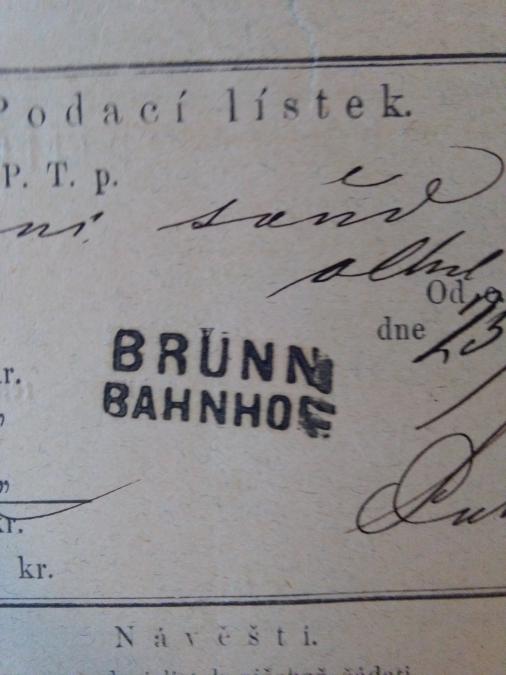 Podací lístek.
P. T. p.
ní soud
Od e
dne 23
BRÜNN
BAHNHOF
kr.
"
"
kr.
kr.
Návěští.